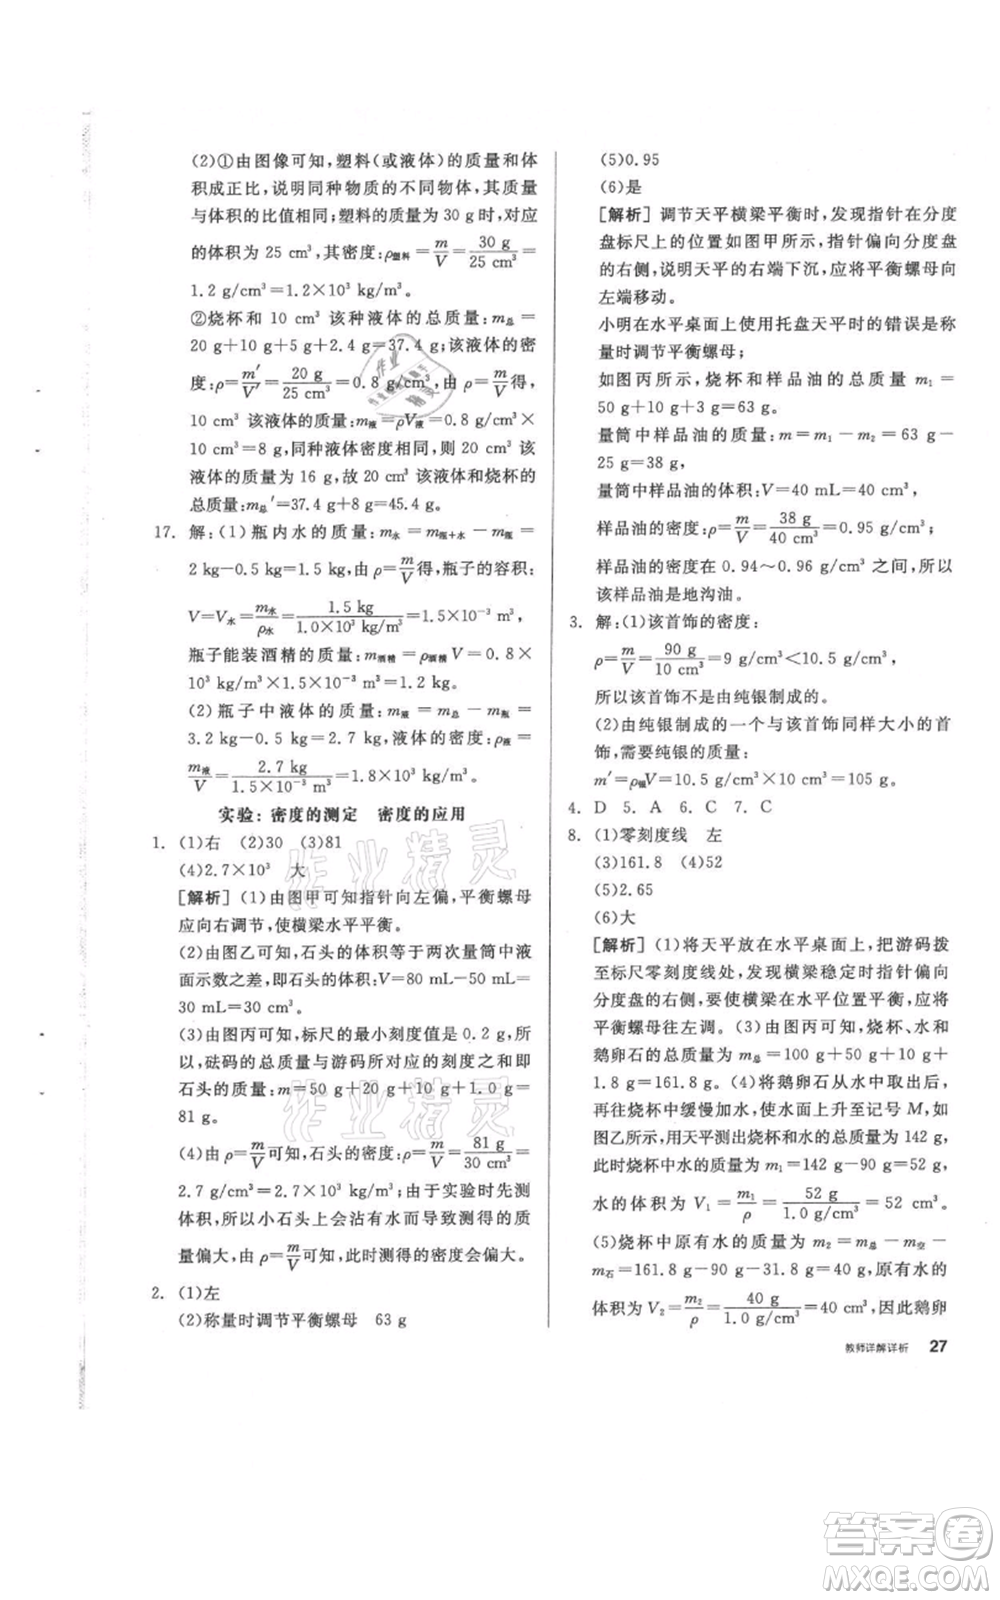 (2)①由图像可知,塑料(或液体)的质量和体
积成正比,说明同种物质的不同物体,其质量
与体积的比值相同;塑料的质量为 30 g 时,对应
的体积为 25 cm³,其密度:ρ塑料=m/V=30 g/25 cm³=
1.2 g/cm³=1.2×10³ kg/m³。
②烧杯和 10 cm³ 该种液体的总质量:m总=
20 g+10 g+5 g+2.4 g=37.4 g;该液体的密
度:ρ=m′/V′=20 g/25 cm³=0.8 g/cm³,由 ρ=m/V得,
10 cm³ 该液体的质量:m液=ρV液=0.8 g/cm³×
10 cm³=8 g,同种液体密度相同,则 20 cm³ 该
液体的质量为 16 g,故 20 cm³ 该液体和烧杯的
总质量:m总′=37.4 g+8 g=45.4 g。
17. 解:(1)瓶内水的质量:m水=m瓶+水-m瓶=
2 kg-0.5 kg=1.5 kg,由 ρ=m/V得,瓶子的容积:
V=V水=m水/ρ水=1.5 kg/1.0×10³ kg/m³=1.5×10⁻³ m³,
瓶子能装酒精的质量:m酒精=ρ酒精V=0.8×
10³ kg/m³×1.5×10⁻³ m³=1.2 kg。
(2)瓶子中液体的质量:m液=m总-m瓶=
3.2 kg-0.5 kg=2.7 kg,液体的密度:ρ液=
m液/V=2.7 kg/1.5×10⁻³ m³=1.8×10³ kg/m³。
实验:密度的测定 密度的应用
1. (1)右 (2)30 (3)81
(4)2.7×10³ 大
[解析] (1)由图甲可知指针向左偏,平衡螺母
应向右调节,使横梁水平平衡。
(2)由图乙可知,石头的体积等于两次量筒中液
面示数之差,即石头的体积:V=80 mL-50 mL=
30 mL=30 cm³。
(3)由图丙可知,标尺的最小刻度值是 0.2 g,
所以,砝码的总质量与游码所对应的刻度之和即
石头的质量:m=50 g+20 g+10 g+1 g=
81 g。
(4)由 ρ=m/V可知,石头的密度:ρ=m/V=81 g/30 cm³=
2.7 g/cm³=2.7×10³ kg/m³;由于实验时先测
体积,所以小石头上会沾有水而导致测得的质
量偏大,由 ρ=m/V可知,此时测得的密度会偏大。
2. (1)左
(2)称量时调节平衡螺母 63 g
(5)0.95
(6)是
[解析] 调节天平横梁平衡时,发现指针在分度
盘标尺上的位置如图甲所示,指针偏向分度盘
的右侧,说明天平的右端下沉,应将平衡螺母向
左端移动。
小明在水平桌面上使用托盘天平时的错误是称
量时调节平衡螺母;
如图丙所示,烧杯和样品油的总质量 m₁=
50 g+10 g+3 g=63 g。
量筒中样品油的质量:m=m₁-m₂=63 g-
25 g=38 g,
量筒中样品油的体积:V=40 mL=40 cm³,
样品油的密度:ρ=m/V=38 g/40 cm³=0.95 g/cm³;
样品油的密度在 0.94~0.96 g/cm³ 范围内,所以
该样品油是地沟油。
3. 解:(1)该首饰的密度:
ρ=m/V=90 g/10 cm³=9 g/cm³<10.5 g/cm³,
所以该首饰不是由纯银制成的。
(2)由纯银制成的一个与该首饰同样大小的首
饰,需要纯银的质量:
m′=ρ银V=10.5 g/cm³×10 cm³=105 g。
4. D 5. A 6. C 7. C
8. (1)零刻度线 左
(3)161.8 (4)52
(5)2.65
(6)大
[解析] (1)将天平放在水平桌面上,把游码拨
至标尺零刻度线处,发现横梁稳定时指针偏向
分度盘的右侧,要使横梁在水平位置平衡,应将
平衡螺母往左调。(3)由图甲可知,烧杯、水和
鹅卵石的总质量为 m总=100 g+50 g+10 g+
1.8 g=161.8 g。(4)将鹅卵石从水中取出后,
再往烧杯中缓慢加水,使水面上升至记号 M,如
图乙所示,用天平测出烧杯和水的总质量为 142 g,
此时烧杯中水的质量为 m₁=142 g-90 g=52 g,
水的体积为 V₁=m₁/ρ=52 g/1.0 g/cm³=52 cm³。
(5)烧杯中原有水的质量为 m₂=m总-m空-
m石=161.8 g-90 g-31.8 g=40 g,原有水的
体积为 V₂=m₂/ρ=40 g/1.0 g/cm³=40 cm³,因此鹅卵
教师详解详析 27
作业精灵
作业精灵
答案圈
MXQE.COM